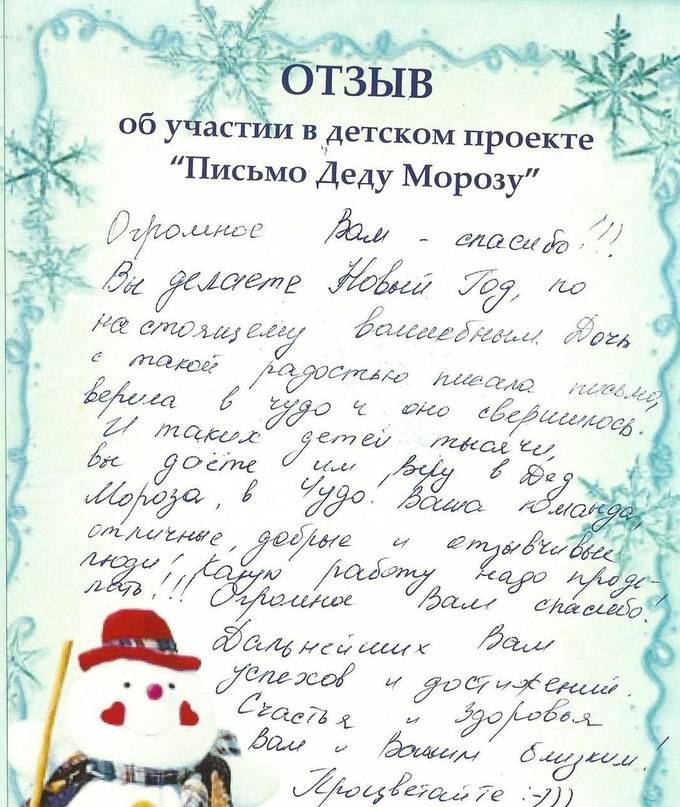 ОТЗЫВ
об участии в детском проекте
“Письмо Деду Морозу”
Огромное Вам - спасибо!!!
Вы делаете Новый Год, по
настоящему волшебным. Дочь
с такой радостью писала письмо,
верила в чудо и оно свершилось.
И таких детей тысячи,
вы даёте им веру в Дед
Мороза, в Чудо. Ваша команда,
отличные, добрые и отзывчивые
люди! Какую работу надо проде-
лать!!! Огромное Вам спасибо!
Дальнейших Вам
успехов и достижений.
Счастья и Здоровья
Вам и Вашим близким!
Процветайте :-)))